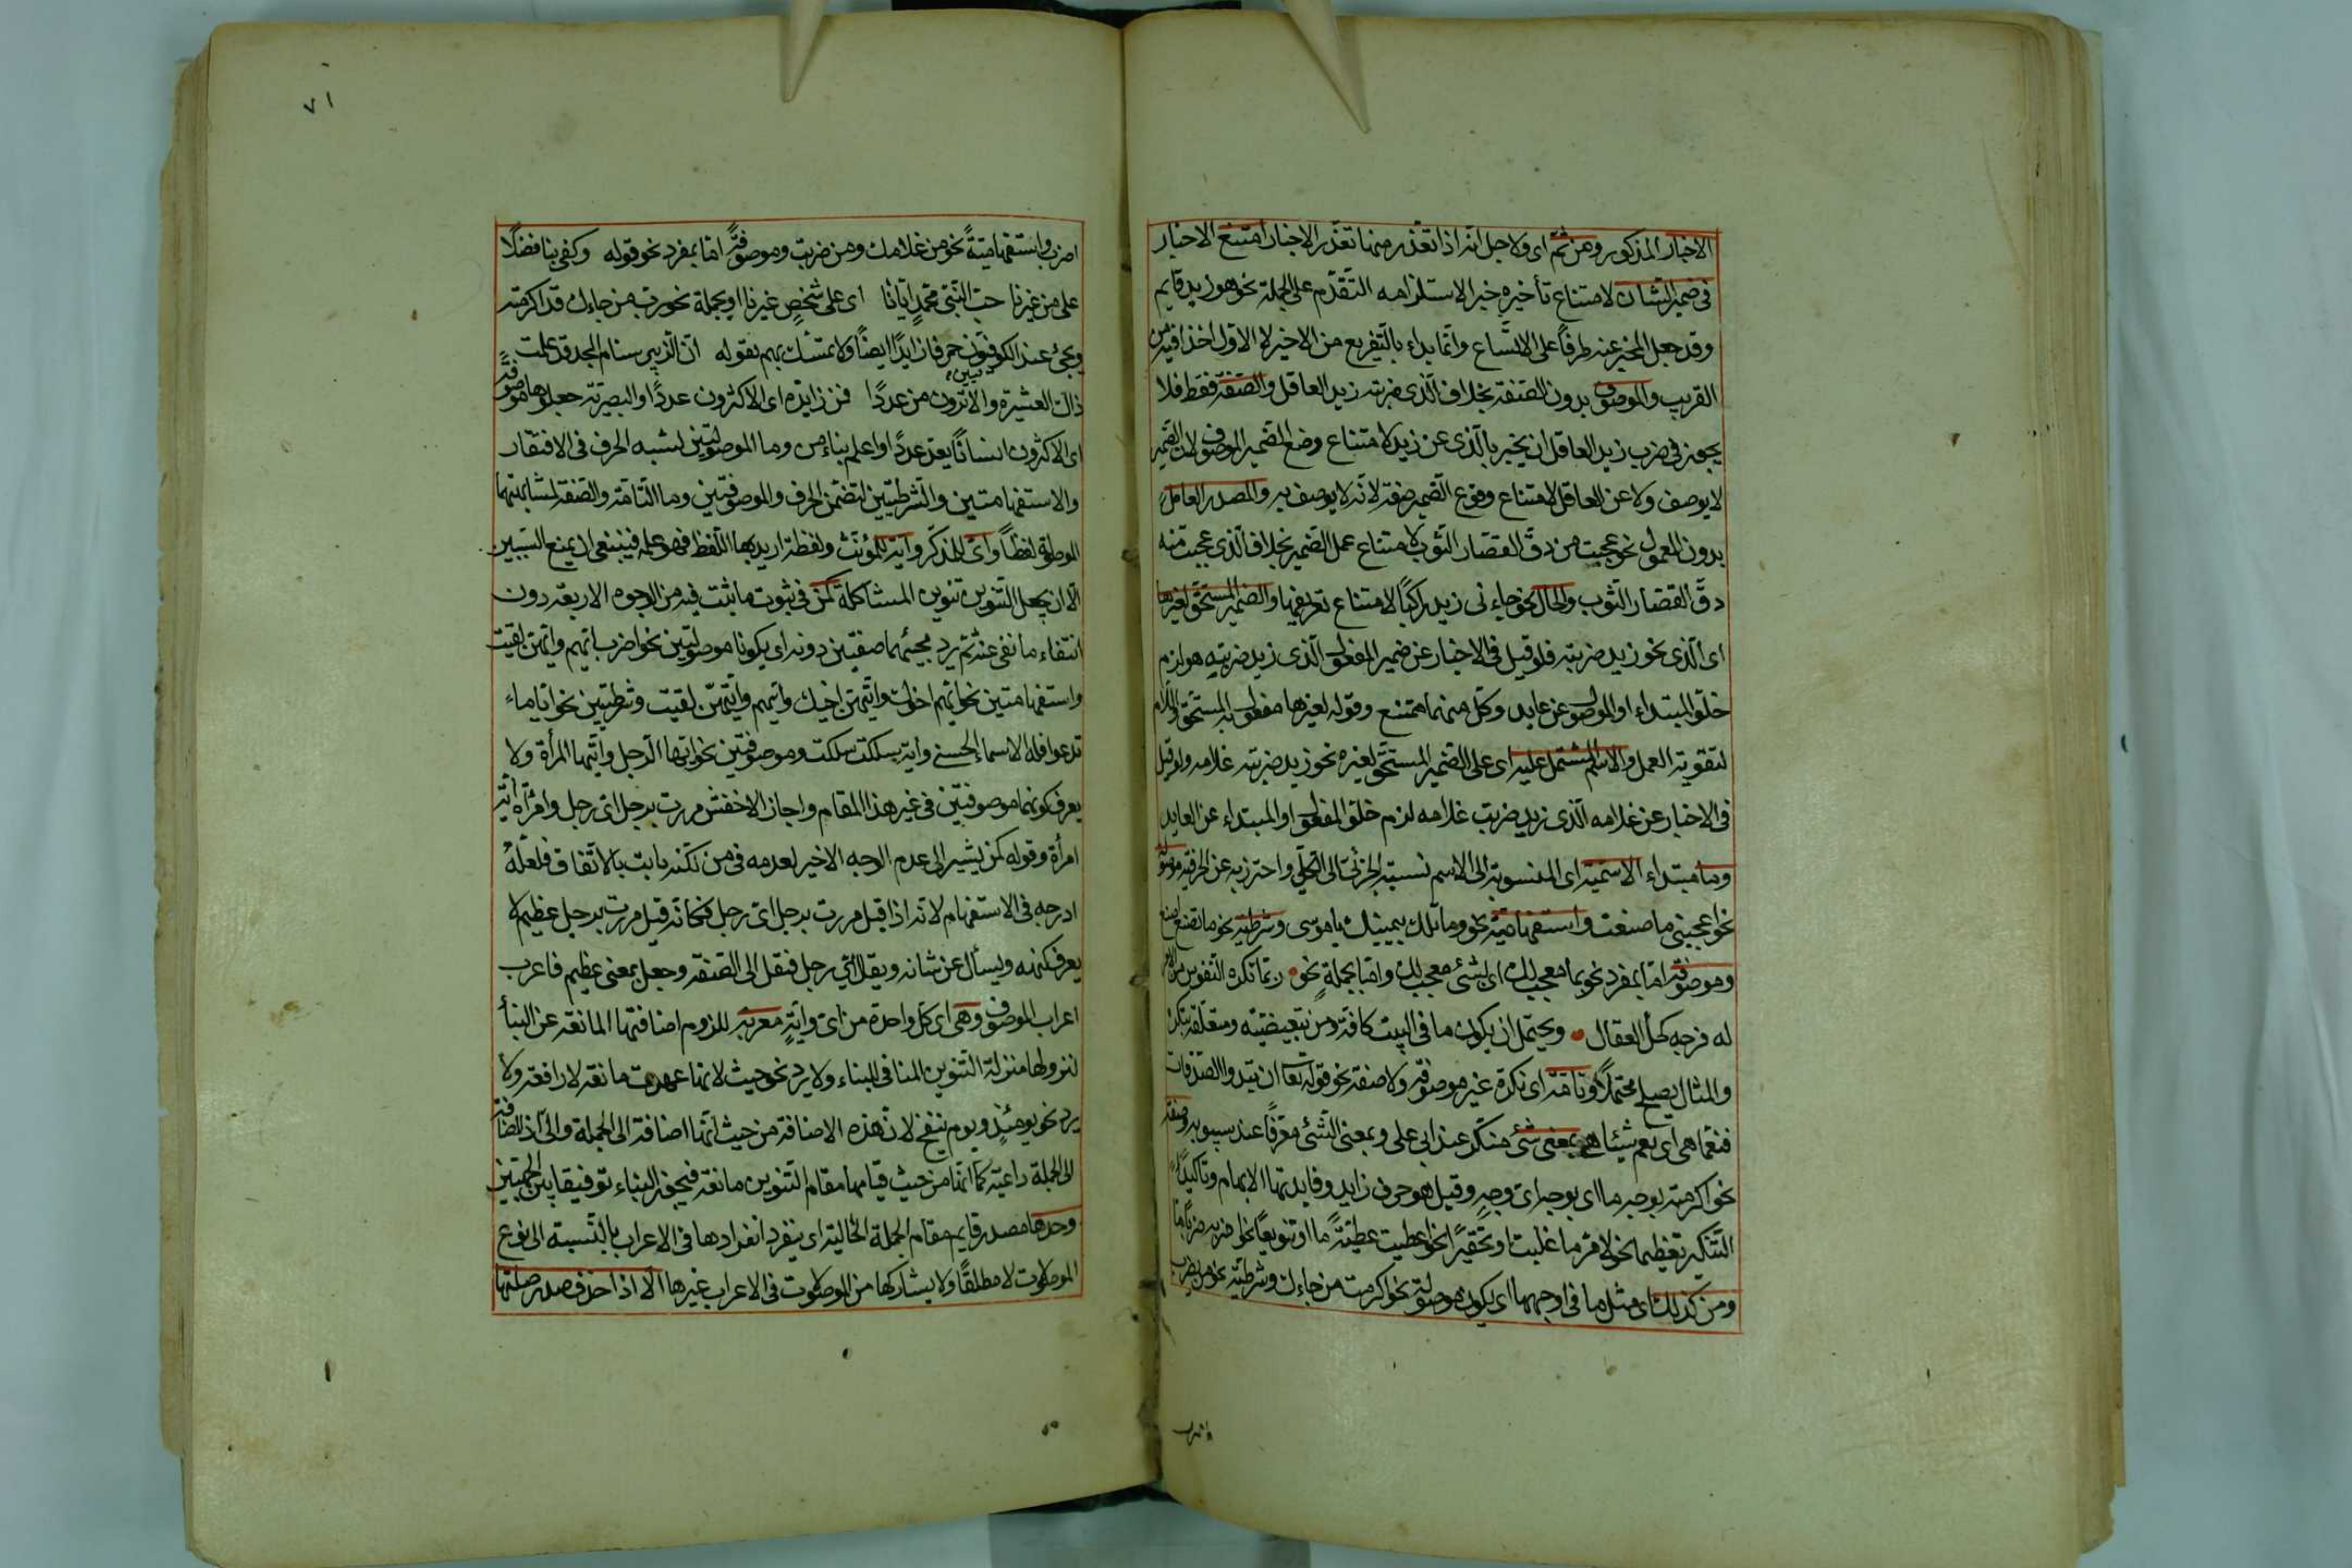 الاخبار المذكور ومن ثم اى ولاجل انه اذا تعذر منها تعذر الاخبار امتنع الاخبار
فى ضمير الشان لامتناع تأخيره خبرا لاستلزامه التقدم على الجملة نحو هو زيد قايم
وقد جعل المخبر عنه ظرفا على الاتساع وانما بداء بالتفريع من الاخير لا الاول اخذا فيه من
القريب والموصوف بدون الصفة بخلاف الذى ضربته زيد العاقل والصفة فقط فلا
يجوز فى ضرب زيد العاقل ان يخبر بالذى عن زيد لامتناع وضع الضمير الموصوف لان الضمير
لا يوصف ولا عن العاقل لامتناع وقوع الضمير صفة لانه لا يوصف به والمصدر العامل
بدون المعمول نحو عجبت من دق القصار الثوب لامتناع عمل الضمير بخلاف الذى عجبت منه
دق القصار الثوب والحال نحو جاءنى زيد راكبا لامتناع تعريفها والضمير المستحق لغيرها
اى الذى نحو زيد ضربته فلو قيل فى الاخبار عن ضمير المفعول الذى زيد ضربته هو لزم
خلو المبتداء او الموصول عن عايد وكل منهما ممتنع وقوله لغيرها مفعول به للمستحق واللام
لتقوية العمل والاسم المشتمل عليه اى على الضمير المستحق لغيره نحو زيد ضربت غلامه ولو قيل
فى الاخبار عن غلامه الذى زيد ضربت غلامه لزم خلو المفعول او المبتداء عن العايد
وما مبتداء الاسمية اى المنسوبة الى الاسم نسبة الجزئى الى الكلى واحترز به عن الحرفية موصولة
نحو اعجبنى ما صنعت واستفهامية نحو وما تلك بيمينك يا موسى وشرطية نحو ما تصنع اصنع
وموصوفة اما بمفرد نحو بما معجب لك اى بشئ معجب لك واما بجملة نحو ربما تكره النفوس من الامر
له فرجة كحل العقال ويحتمل ان يكون ما فى البيت كافة ومن تبعيضية ومتعلقة بتكره
والمثال يصلح محتملا وتامة اى نكرة غير موصوفة ولا صفة نحو قوله تعا ان تبدوا الصدقات
فنعما هى اى نعم شيئا هى بمعنى شئ منكر عند ابى على وبمعنى الشئ معرفا عند سيبويه وصفة
نحو اكرمته بوجه ما اى بوجه اى وجه وقيل هو حرف زايد وفايدتها الابهام وتأكيدا
التنكير تعظيما نحو لامر ما غلبت او تحقيرا نحو اعطيت عطية ما او تنويعا نحو اضربه ضربا ما
ومن كذلك اى مثل ما فى اوجهها اى يكون موصولة نحو اكرمت من جاءك وشرطية نحو من يضرب
اضرب
٧١
اضرب واستفهامية نحو من غلامك ومن ضربت وموصوفة اما بمفرد نحو قوله وكفى بنا فضلا
على من غيرنا حب النبى محمد ايانا اى على شخص غيرنا او بجملة نحو رب من جاءك قد اكرمته
ويجئ عند الكوفيون حرفا زايدا ايضا ولا تمسك بهم بقوله ان الزبير سنام المجد قد علمت
ذاك العشيرة والاثرون من عددا فمن زايدة اى الاكثرون عددا والبصرية جعلوها موصوفة
اى الاكثرون انسانا يعد عددا واعلم بناء من وما الموصولتين لشبه الحرف فى الافتقار
والاستفهامتين والشرطيتين لتضمن الحرف والموصوفتين وما التامة والصفة لمشابهتها
الموصولة لفظا واى للمذكر واية للمؤنث ولفظة اريد بها اللفظ فهو علم فينبغى ان يمنع للسببين
الا ان يجعل التنوين تنوين المشاكلة كمن فى ثبوت ما ثبت فيه من الوجوه الاربعة دون
انتفاء ما نفى عنه ثم يرد مجيئهما صفتين دونه اى يكونا موصولتين نحو اضرب ايهم وايتهن لقيت
واستفهامتين نحو ايهم اخوك وايتهن اخيك وايهم وايتهن لقيت وشرطيتين نحو اياما
تدعوا فله الاسماء الحسنى واية سلكت سلكت وموصوفتين نحو ايها الرجل وايتها المرأة ولا
يعرف كونهما موصوفتين فى غير هذا المقام واجاز الاخفش مررت برجل اى رجل وامرأة اية
امرأة وقوله كمن يشير الى عدم الوجه الاخير لعدمه فى من لكنه ثابت بالاتفاق فلعله
ادرجه فى الاستفهام لانه اذا قيل مررت برجل اى رجل فكانه قيل مررت برجل عظيم لا
يعرف كنهه ويسأل عن شانه ويقال اى رجل فنقل الى الصفة وجعل بمعنى عظيم فاعرب
اعراب الموصوف وهى اى كل واحدة من اى واية معربة للزوم اضافتها المانعة عن البناء
لنزولها منزلة التنوين المنافى للبناء ولا يرد نحو حيث لانها عهدت مانعة لا رافعة ولا
يرد نحو يومئذ ويوم ينفخ لان هذه الاضافة من حيث انها اضافة الى الجملة والى اذ المضافة
الى الجملة داعية كما انها من حيث قيامها مقام التنوين مانعة فيجوز البناء توفيقا بين الجهتين
وحدها مصدر قايم مقام الجملة الحالية اى ينفرد انفرادها فى الاعراب بالنسبة الى نوع
الموصولات لا مطلقا ولا يشاركها من الموصولات فى الاعراب غيرها الا اذا حذف صدر صلتها